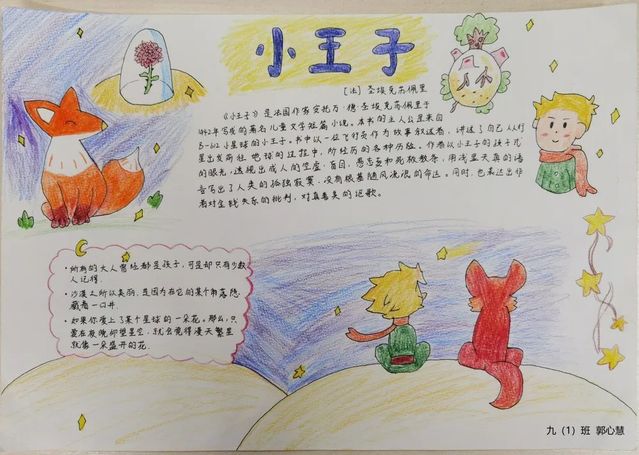 小王子
[法] 圣埃克苏佩里
《小王子》是法国作家安托万·德·圣埃克苏佩里于
1942年写成的著名儿童文学短篇小说。本书的主人公是来自
B-612小星球的小王子。书中以一位飞行员作为故事叙述者,讲述了自己从
星出发前往地球的过程中,所经历的各种历险。作者以小王子的孩子式
的眼光,透视出成人的空虚,盲目,愚妄和死板教条,用浅显天真的语
言写出了人类的孤独寂寞、没有根基随风流浪的命运。同时,也表达出作
者对金钱关系的批判,对真善美的讴歌。
·所有的大人曾经都是孩子,可是却只有少数
人记得.
·沙漠之所以美丽,是因为在它的某个角落隐
藏着一口井.
·如果你爱上了某个星球的一朵花。那么,只
要在夜晚仰望星空,就会觉得漫天繁星
就像一朵盛开的花.
九(1)班 郭心慧